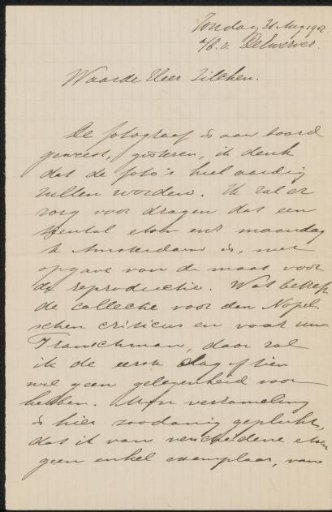 Zondag 26 Aug 1902
a/b.v. Delwerver.
Waarde Heer Zilcken.
De fotograaf is aan boord
geweest, gisteren, ik denk
dat de foto's heel aardig
zullen worden. Ik zal er
zorg voor dragen dat een
tental etsen eind maandag
te Amsterdam is, met
opgave van de maat voor
de reproductie. Wat betreft
de collectie voor den Napel-
schen criticus en voor uw
Franschman, daar zal
ik de eerste dag of tien
wel geen gelegenheid voor
hebben. Mijn verzameling
is hier zoodanig geplukt,
dat ik van verscheidene etsen
geen enkel exemplaar, van